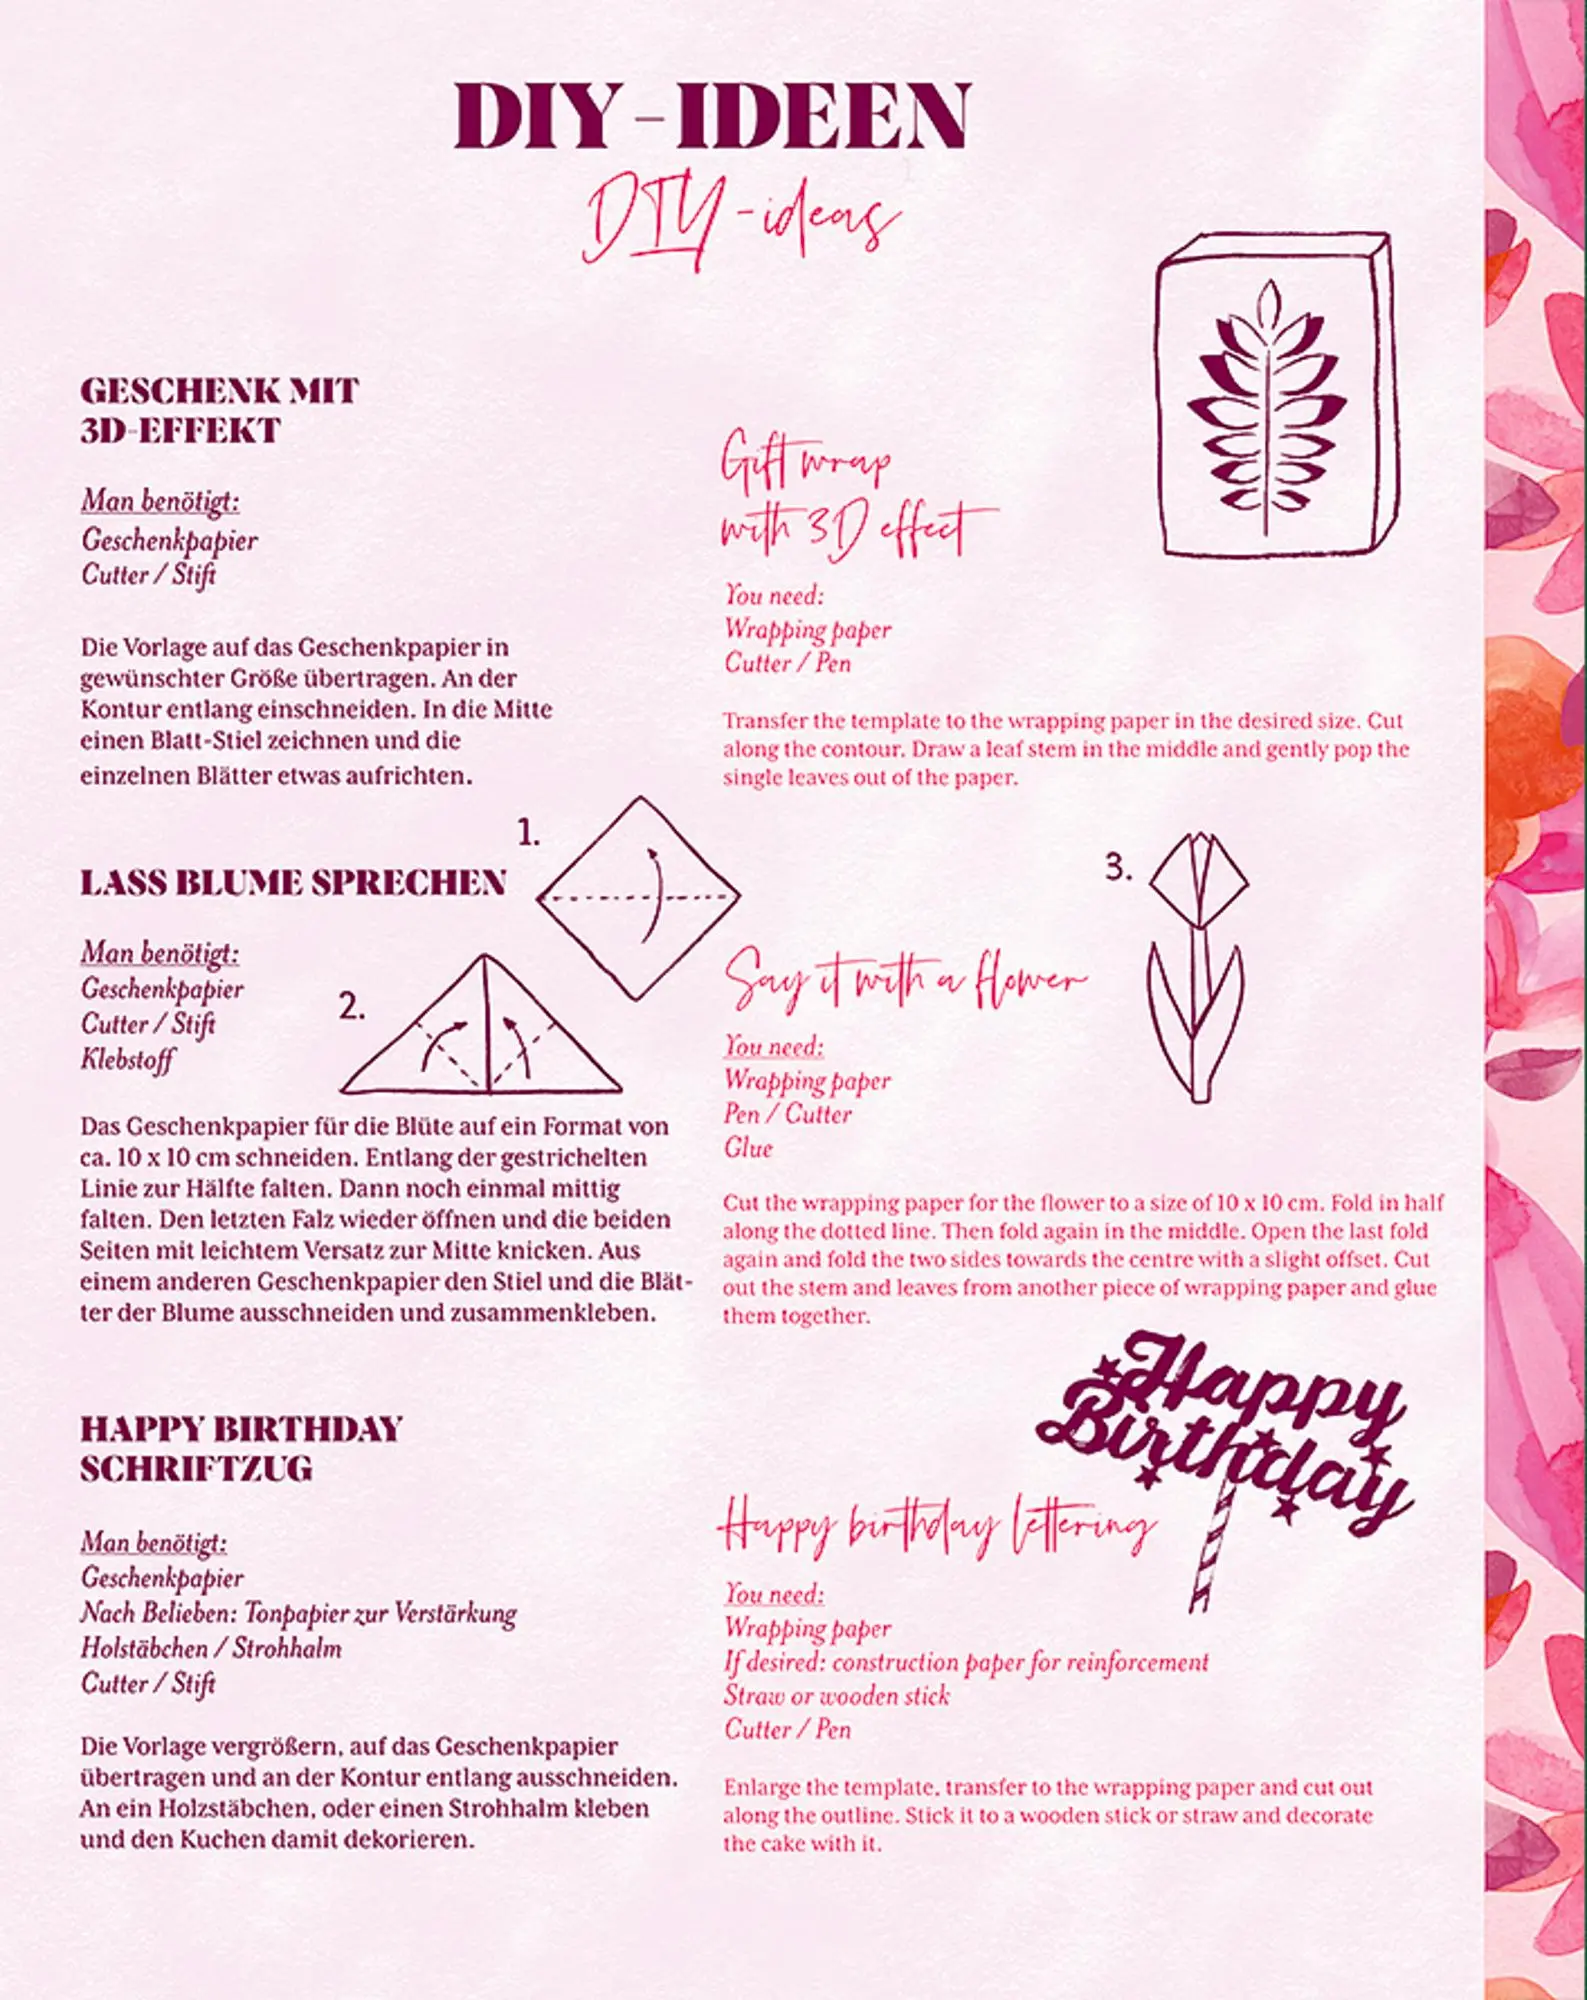 DIY-IDEEN
DIY-ideas
GESCHENK MIT
3D-EFFEKT
Man benötigt:
Geschenkpapier
Cutter / Stift
Die Vorlage auf das Geschenkpapier in
gewünschter Größe übertragen. An der
Kontur entlang einschneiden. In die Mitte
einen Blatt-Stiel zeichnen und die
einzelnen Blätter etwas aufrichten.
Gift wrap
with 3D effect
You need:
Wrapping paper
Cutter / Pen
Transfer the template to the wrapping paper in the desired size. Cut
along the contour. Draw a leaf stem in the middle and gently pop the
single leaves out of the paper.
LASS BLUME SPRECHEN
1.
2.
3.
Man benötigt:
Geschenkpapier
Cutter / Stift
Klebstoff
Das Geschenkpapier für die Blüte auf ein Format von
ca. 10 x 10 cm schneiden. Entlang der gestrichelten
Linie zur Hälfte falten. Dann noch einmal mittig
falten. Den letzten Falz wieder öffnen und die beiden
Seiten mit leichtem Versatz zur Mitte knicken. Aus
einem anderen Geschenkpapier den Stiel und die Blät-
ter der Blume ausschneiden und zusammenkleben.
Say it with a flower
You need:
Wrapping paper
Pen / Cutter
Glue
Cut the wrapping paper for the flower to a size of 10 x 10 cm. Fold in half
along the dotted line. Then fold again in the middle. Open the last fold
again and fold the two sides towards the centre with a slight offset. Cut
out the stem and leaves from another piece of wrapping paper and glue
them together.
HAPPY BIRTHDAY
SCHRIFTZUG
Man benötigt:
Geschenkpapier
Nach Belieben: Tonpapier zur Verstärkung
Holstäbchen / Strohhalm
Cutter / Stift
Die Vorlage vergrößern, auf das Geschenkpapier
übertragen und an der Kontur entlang ausschneiden.
An ein Holzstäbchen, oder einen Strohhalm kleben
und den Kuchen damit dekorieren.
Happy
Birthday
Happy birthday lettering
You need:
Wrapping paper
If desired: construction paper for reinforcement
Straw or wooden stick
Cutter / Pen
Enlarge the template, transfer to the wrapping paper and cut out
along the outline. Stick it to a wooden stick or straw and decorate
the cake with it.